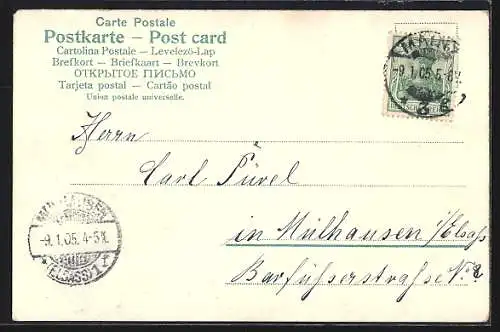 Carte Postale
Postkarte – Post card
Cartolina Postale – Levelező-Lap
Brefkort – Briefkaart – Brevkort
ОТКРЫТОЕ ПИСЬМО
Tarjeta postal – Cartão postal
Union postale universelle.
-9.1.05.5-6
Herrn
Carl
in Mülhausen i/Elsaß
Barfüsserstrasse N.
MÜLHAUSEN
-9.1.05.4-5
(ELSASS) 1